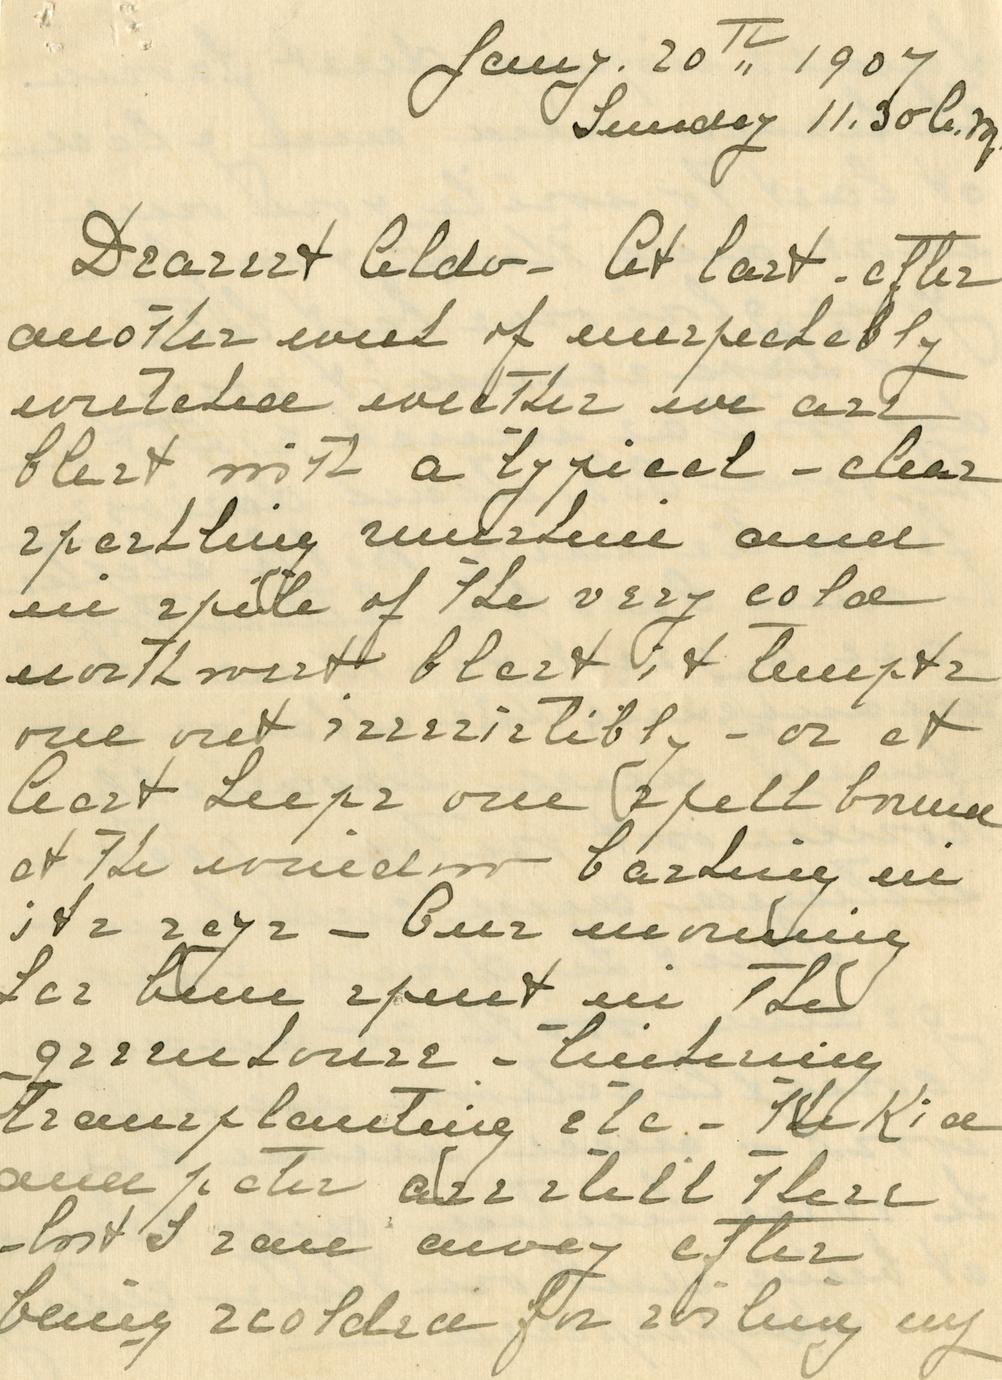 Jany. 20TH 1907
Sunday 11.30 A.M.
Dearest Aldo - At last - after
another week of unspeakably
wretched weather we are
blest with a typical - clear
sparkling sunshine and
in spite of the very cold
northwest blast it tempts
one out irresistibly - or at
least keeps one spell bound
at the window basking in
its rays - Our morning
has been spent in the
greenhouse - tinkering
transplanting etc - The Kid
and pater are still there
- but I ran away after
being scolded for soiling my